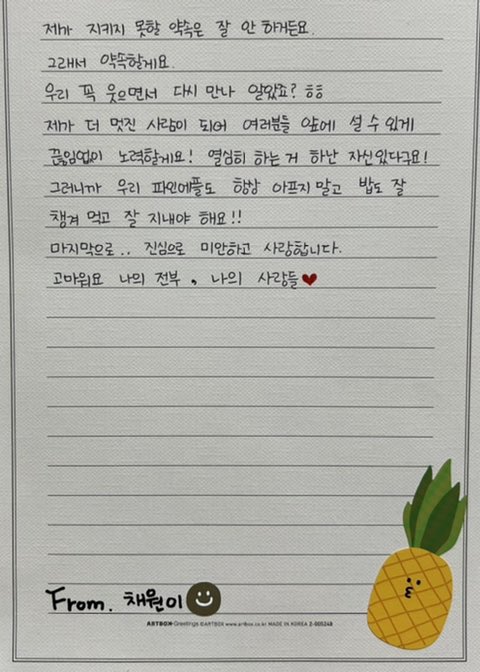 제가 지키지 못할 약속은 잘 안 하거든요.
그래서 약속할게요.
우리 꼭 웃으면서 다시 만나 알았죠? ㅎㅎ
제가 더 멋진 사람이 되어 여러분들 앞에 설 수 있게
끊임없이 노력할게요! 열심히 하는 거 하난 자신있다구요!
그러니까 우리 파인애플도 항상 아프지 말고 밥도 잘
챙겨 먹고 잘 지내야 해요!!
마지막으로.. 진심으로 미안하고 사랑합니다.
고마워요 나의 전부, 나의 사랑들♥
From. 채원이
ARTBOX Greetings ©ARTBOX www.artbox.co.kr MADE IN KOREA 2-005248